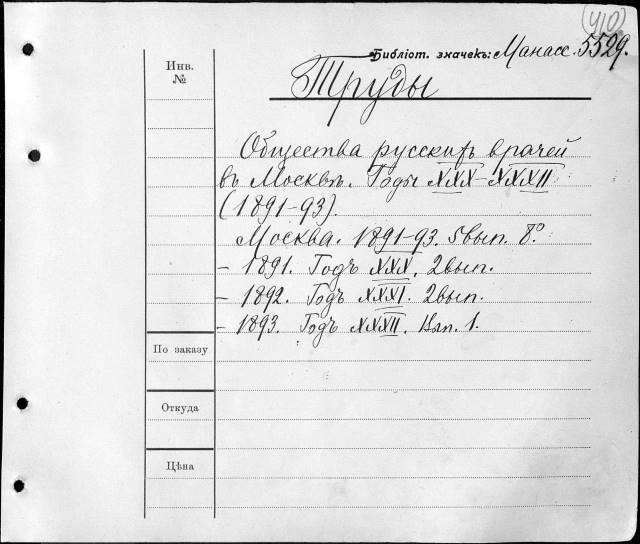 (40)
Библіот. значекъ: Манасс. 5529.
Инв.
№
Труды
Общества русскихъ врачей
въ Москвѣ. Годы XXX-XXXII
(1891-93).
Москва. 1891-93. 5 вып. 8º.
- 1891. Годъ XXX. 2 вып.
- 1892. Годъ XXXI. 2 вып.
- 1893. Годъ XXXII. Вып. 1.
По заказу
Откуда
Цѣна